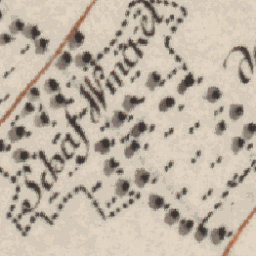 Schaf Winckel